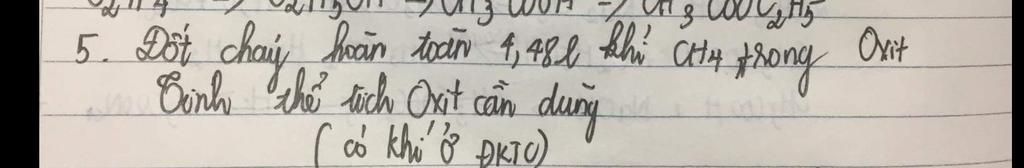 C₂H₄ -> C₂H₅OH -> CH₃COOH -> CH₃COOC₂H₅
5. Đốt cháy hoàn toàn 4,48l khí CH₄ trong Oxit
Tính thể tích Oxit cần dùng
(có khí ở ĐKTC)